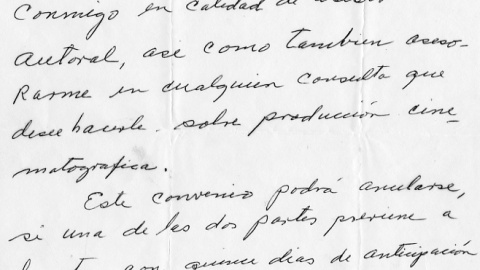 Conmigo en calidad de asesor
autoral, ase como tambien aseso-
rarme en cualquier consulta que
desee hacerle. sobre producción cine-
matografica.
Este convenio podrá anularse,
si una de las dos partes previene a
con quince dias de anticipación